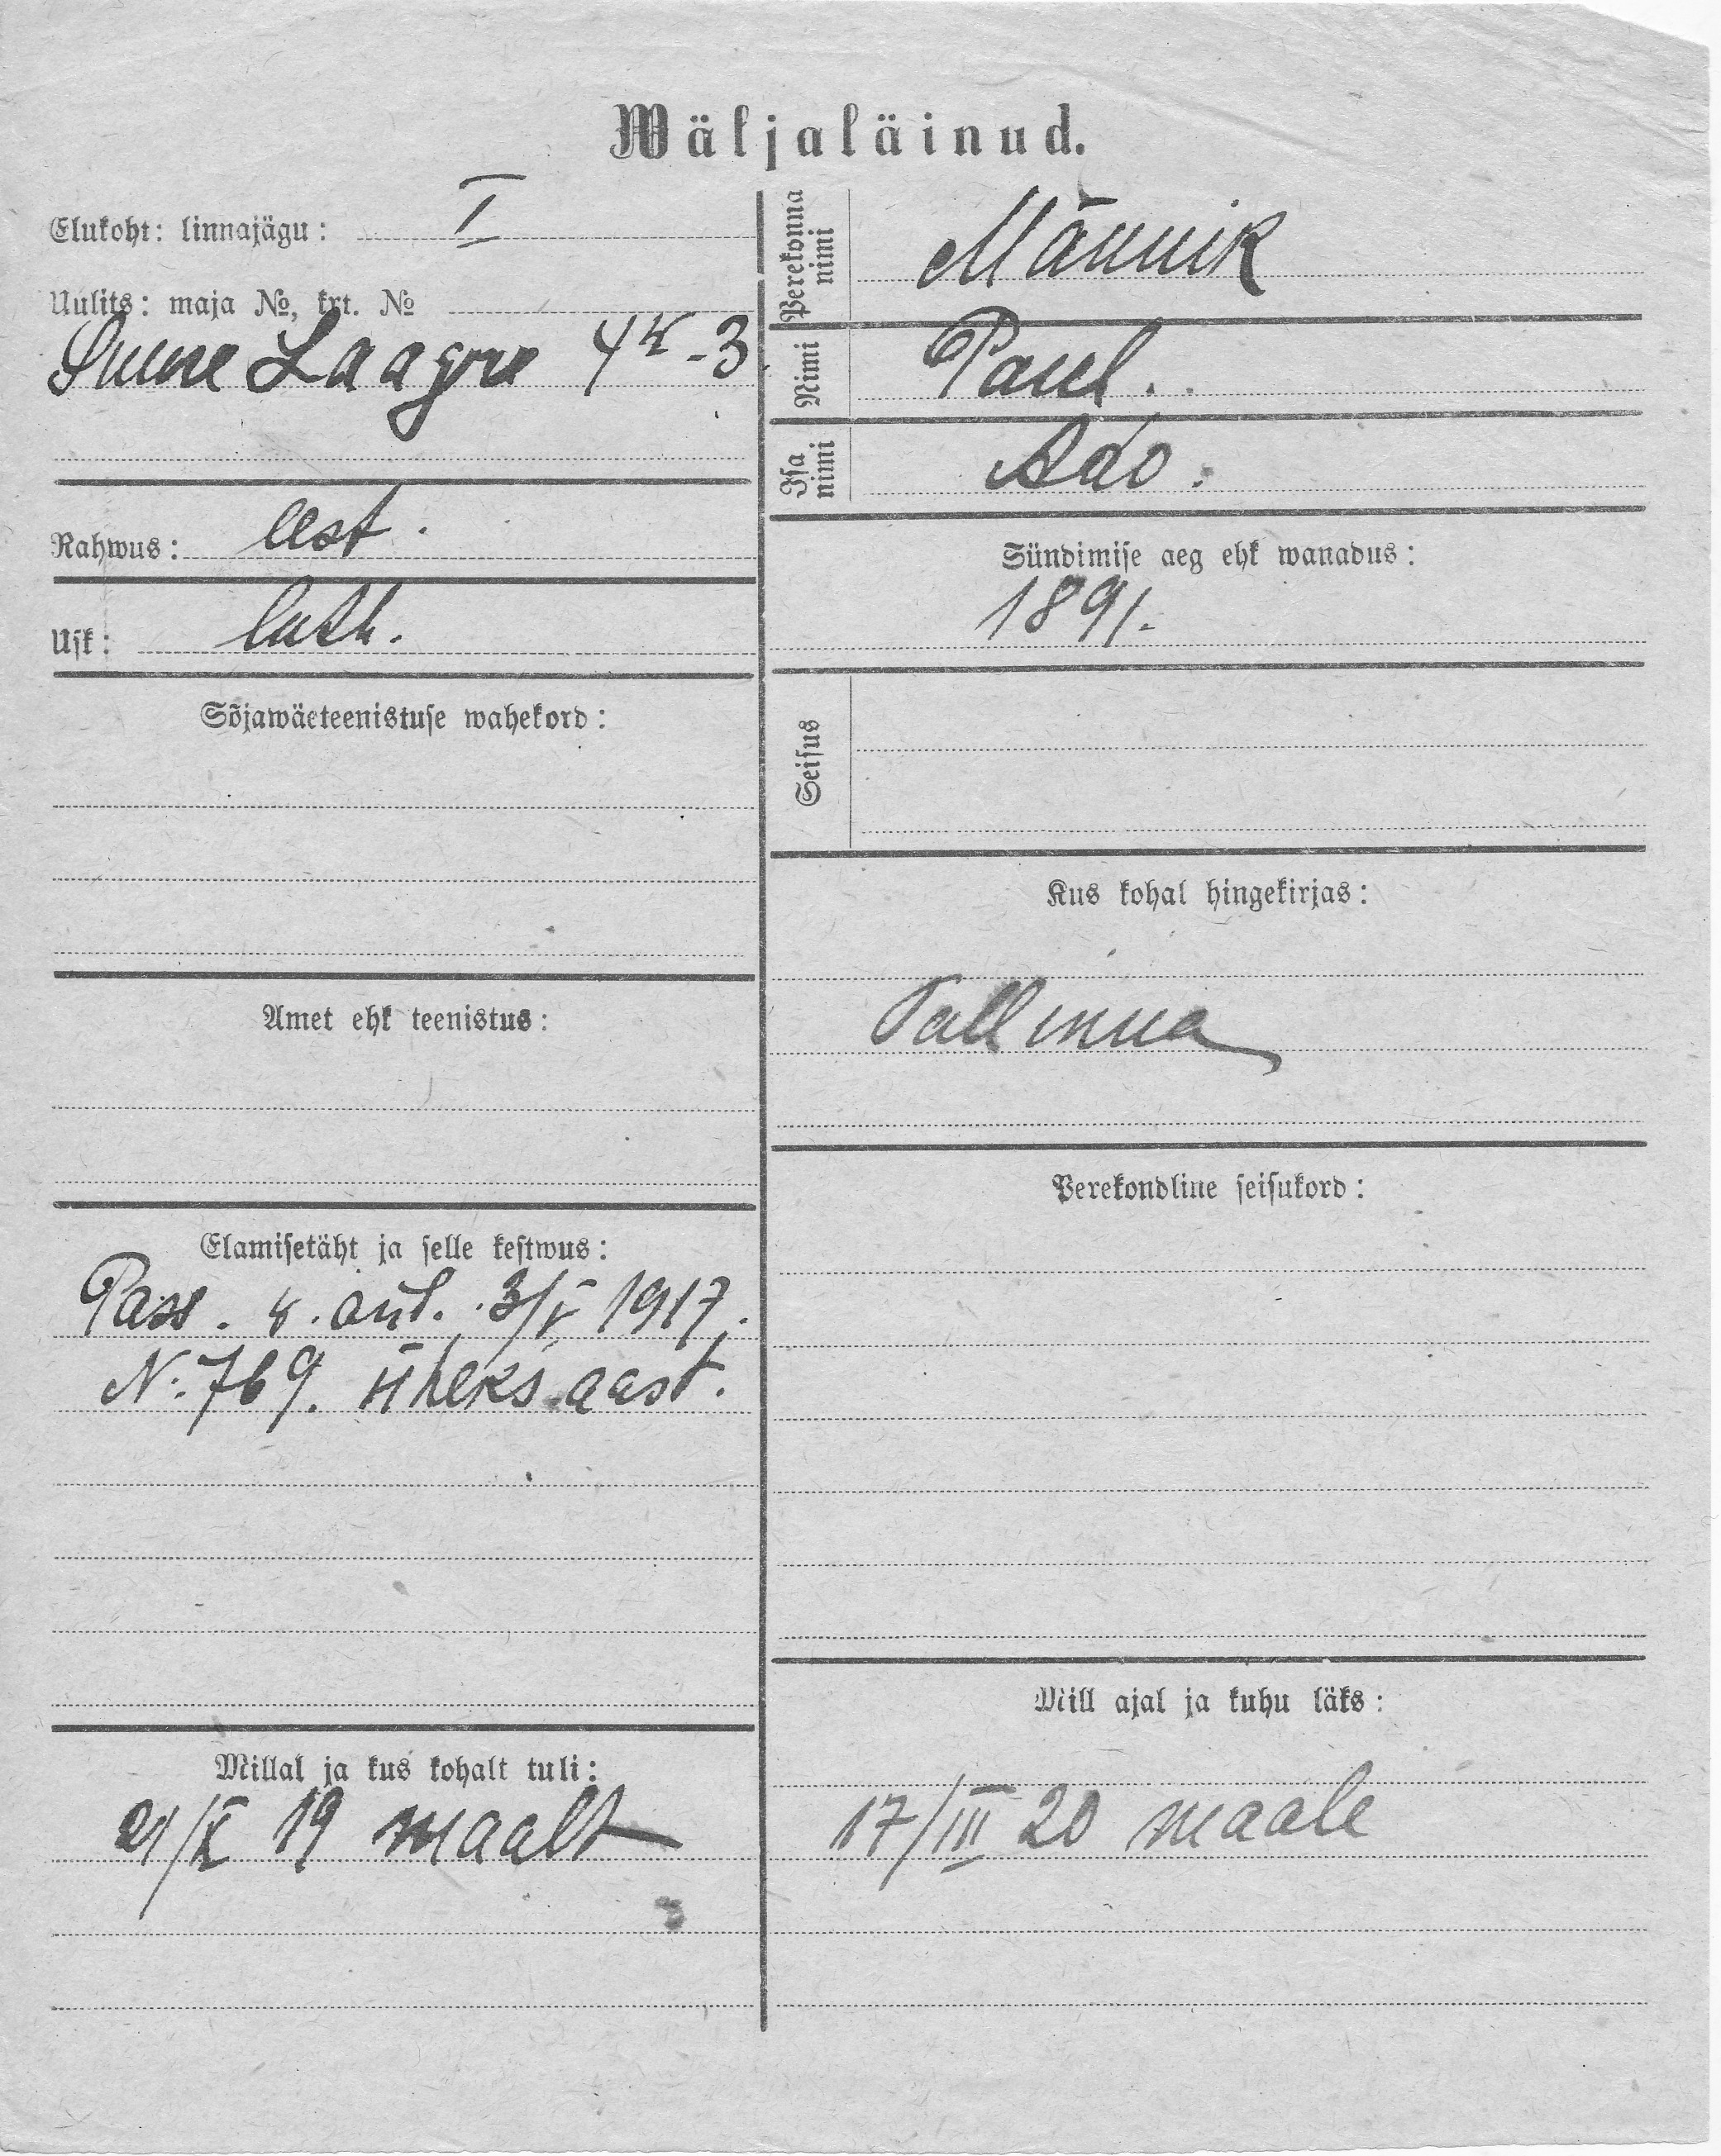 Wäljaläinud.
Elukoht: linnajägu: I
Uulits: maja №, krt. №
Suure Laagre 4 -3
Rahwus: eest.
Usk: luth.
Sõjawäeteenistuse wahekord:
Amet ehk teenistus:
Elamisetäht ja selle kestwus:
Pass. 3/V 1917.
N: 769. üheks aast.
Millal ja kus kohalt tuli:
21/X 19 maalt
Perekonna nimi
Männik
Nimi
Paul.
Isa nimi
Ado.
Sündimise aeg ehk wanadus:
1891.
Seisus
Kus kohal hingekirjas:
Tallinna
Perekondline seisukord:
Mill ajal ja kuhu läks:
17/III 20 maale